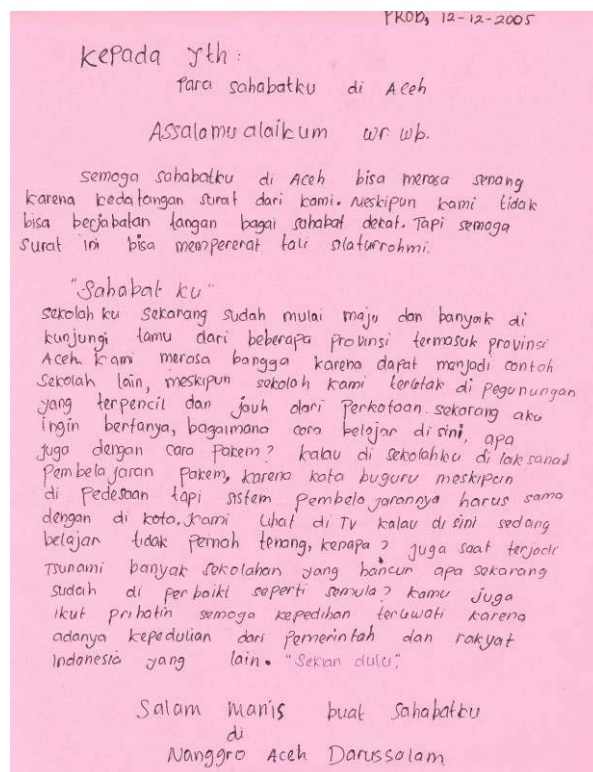 PROB, 12-12-2005
Kepada Yth:
Para sahabatku di Aceh
Assalamu alaikum wr. wb.
semoga sahabatku di Aceh bisa merasa senang
karena kedatangan surat dari kami. Meskipun kami tidak
bisa berjabatan tangan bagai sahabat dekat. Tapi semoga
surat ini bisa mempererat tali silaturrohmi.
"Sahabat ku"
sekolah ku sekarang sudah mulai maju dan banyak di
kunjungi tamu dari beberapa provinsi termasuk provinsi
Aceh. Kami merasa bangga karena dapat menjadi contoh
Sekolah lain, meskipun sekolah kami terletak di pegunungan
yang terpencil dan jauh dari Perkotaan. sekarang aku
ingin bertanya, bagaimana cara belajar disini, apa
juga dengan cara Pakem? kalau di sekolahku di laksanad
Pembelajaran Pakem, karena kata buguru meskipun
di Pedesaan tapi sistem Pembelajarannya harus sama
dengan di kota. Kami lihat di TV kalau di sini sedang
belajar tidak pernah tenang, kenapa? juga saat terjadi
Tsunami banyak sekolahan yang hancur apa sekarang
sudah di perbaiki seperti semula? kamu juga
ikut prihatin semoga kepedihan terlewati karena
adanya kepedulian dari Pemerintah dan rakyat
Indonesia yang lain. "Sekian dulu",
Salam manis buat Sahabatku
di
Nanggro Aceh Darussalam